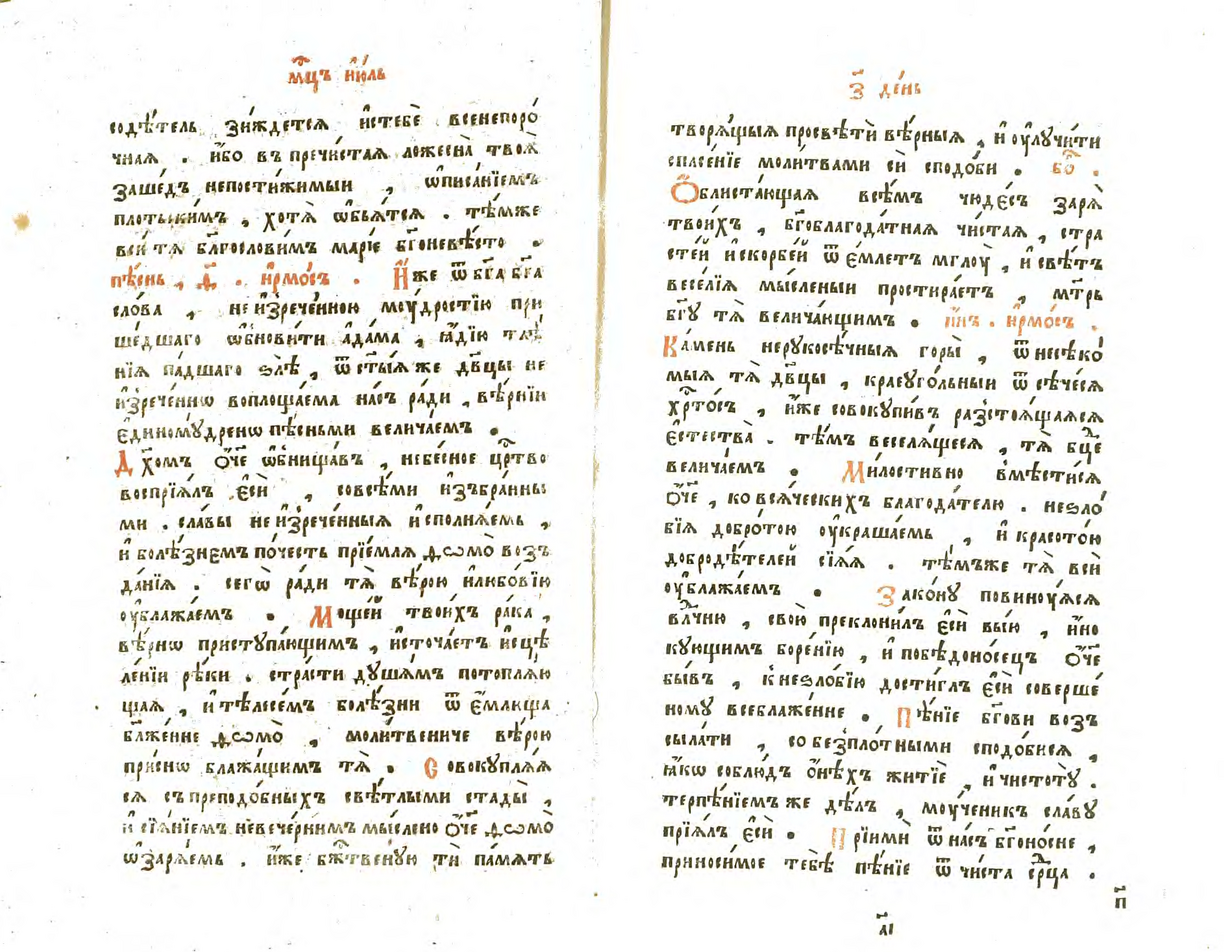 мⷭ҇цъ і҆ю́ль
содѣ́тель зи́ждетсѧ и҆стебѐ всенепоро́
чнаѧ . и҆́бо въ пречи́стаѧ ложесна̀ твоѧ̀
заше́дъ непостижи́мыи , ѡ҆писа́нїемъ
плотьски́мъ , хотѧ̀ ѡ҆бьѧ́тсѧ . тѣ́мже
вси́ тѧ блг҃ослови́мъ марі́е бг҃оневѣ́сто .
пѣ́снь , д҃ . і҆рмо́съ . И҆́же ѿ бг҃а бг҃а
сло́ва , неи҆зрече́нною моу́дростїю при
ше́дшаго ѡ҆бнови́ти а҆да́ма , ꙗ҆́дїю тлѣ́
нїѧ па́дшаго ѕлѣ̀ , ѿ ст҃ы́ѧ же дв҃цы не
и҆зрече́ннѡ воплоща́ема на́съ ра́ди , вѣ́рнїи
є҆диному́дренѡ пѣ́сньми велича́емъ .
Дх҃омъ ѻ҆́ч҃е ѡ҆бнища́въ , небе́сное црⷭ҇тво
воспрїѧ́лъ є҆сѝ , совсѣ́ми и҆збра́нны
ми . сла́вы неи҆зрече́нныѧ и҆сполнѧ́емь ,
и҆ болѣ́знемъ по́честь прїе́млѧ ѳѡмо̀ возъ
да́нїѧ . сегѡ̀ ра́ди тѧ̀ вѣ́рою и҆любо́вїю
оу҆блажа́емъ . Моще́й твои́хъ ра́ка ,
вѣ́рнѡ приступа́ющимъ , и҆сточа́етъ и҆сцѣ
ле́нїи рѣ́ки . стра́сти дꙋша́мъ потоплѧ́ю
щаѧ , и҆ тѣлесе́мъ болѣ́зни ѿ е҆́млюща
блаже́нне ѳѡмо̀ , моли́твениче вѣ́рою
при́снѡ блажа́щимъ тѧ̀ . Совокуплѧ́ѧ
сѧ съпреподо́бныхъ свѣ́тлыми стады̀ ,
и҆ сїѧ́нїемъ невече́рнимъ мы́слено ѻ҆́ч҃е ѳѡмо̀
ѡ҆зарѧ́емь . и҆́же бжⷭ҇твеную тѝ па́мѧть
з҃ де́нь
творѧ́щыѧ просвѣтѝ вѣ́рныѧ , и҆ оу҆лучи́ти
спасе́нїе моли́твами си́ сподо́би . бо .
Ѻ҆блиста́ющаѧ всѣ́мъ чюде́съ зарѧ̀
твои́хъ , бг҃облагода́тнаѧ чи́стаѧ , стра
сте́й и҆скорбе́й ѿ е҆́млетъ мглоу̀ , и҆ свѣ́тъ
весе́лїѧ мы́сленыи простира́етъ , мт҃рь
бг҃у тѧ̀ велича́ющимъ . ин . і҆рмо́съ .
Ка́мень нерукосѣ́чныѧ горы̀ , ѿ несѣко́
мыѧ тѧ̀ дв҃цы , краеуго́льныи ѿ сѣ́чесѧ
хрⷭ҇то́съ , и҆́же совокупи́въ разстоѧ́щаѧсѧ
є҆стества̀ . тѣ́мъ веселѧ́щесѧ , тѧ̀ бцⷣе
велича́емъ . Ми́лостивно вмѣсти́сѧ
ѻ҆́ч҃е , ко всѧ́ческихъ благода́телю . неѕло́
бїѧ добро́тою оу҆краша́емь , и҆ красото́ю
добродѣ́телей сїѧ́ѧ . тѣ́мъже тѧ̀ всѝ
оу҆блажа́емъ . Зако́ну повиноу́ѧсѧ
влⷣчню , свою̀ преклони́лъ є҆сѝ вы́ю , и҆но
кующимъ боре́нїю , и҆ побѣдоно́сецъ ѻ҆́ч҃е
бы́въ , к неѕло́бїю дости́глъ є҆сѝ соверше́
ному всеблаже́нне . Пѣ́нїе бг҃ови возъ
сыла́ти , со безпло́тными сподо́бисѧ ,
ꙗ҆́кѡ соблю́дъ ѻ҆́нѣхъ житїѐ , и҆ чистотꙋ̀ .
терпѣ́нїемъ же дѣ́лъ , моу́ченикъ сла́вꙋ
прїѧ́лъ є҆сѝ . Прїимѝ ѿ на́съ бг҃оно́сне ,
приноси́мое тебѣ̀ пѣ́нїе ѿ чи́ста срⷣца .
п҃
а҃і